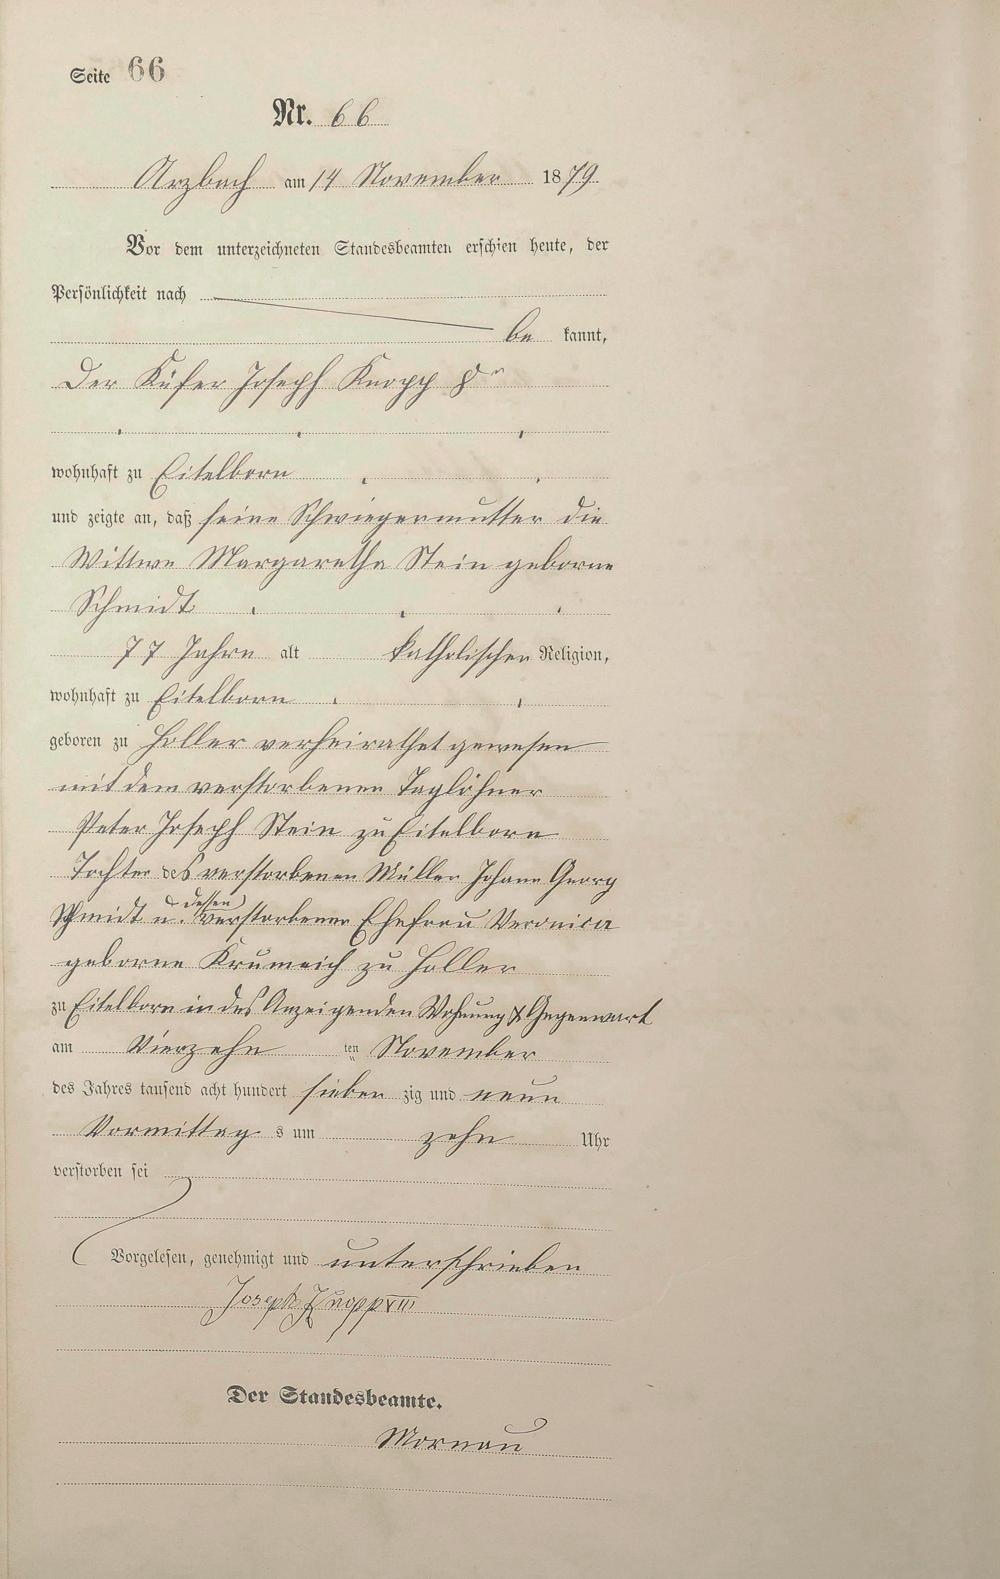 Seite 66
Nr. 66
Arzbach am 14 November 1879.
Vor dem unterzeichneten Standesbeamten erschien heute, der
Persönlichkeit nach
be kannt,
Der Küfer Joseph Knopp 8r
wohnhaft zu Eitelborn
und zeigte an, daß seine Schwiegermutter die
Wittwe Margaretha Stein geborne
Schmidt
77 Jahre alt katholischer Religion,
wohnhaft zu Eitelborn
geboren zu Holler verheirathet gewesen
mit dem verstorbenen Taglöhner
Peter Joseph Stein zu Eitelborn
Tochter des verstorbenen Müller Johann Georg
Schmidt u. dessen verstorbener Ehefrau Veronica
geborne Krumeich zu Holler
zu Eitelborn in des Anzeigenden Wohnung & Gegenwart
am Vierzehn ten November
des Jahres tausend acht hundert sieben zig und neun
Vormittag s um zehn Uhr
verstorben sei
Vorgelesen, genehmigt und unterschrieben
Joseph Knopp VIII
Der Standesbeamte.
Mornau